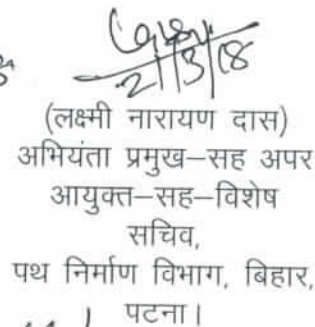 21/3/18
(लक्ष्मी नारायण दास)
अभियंता प्रमुख–सह अपर
आयुक्त–सह–विशेष
सचिव,
पथ निर्माण विभाग, बिहार,
पटना।